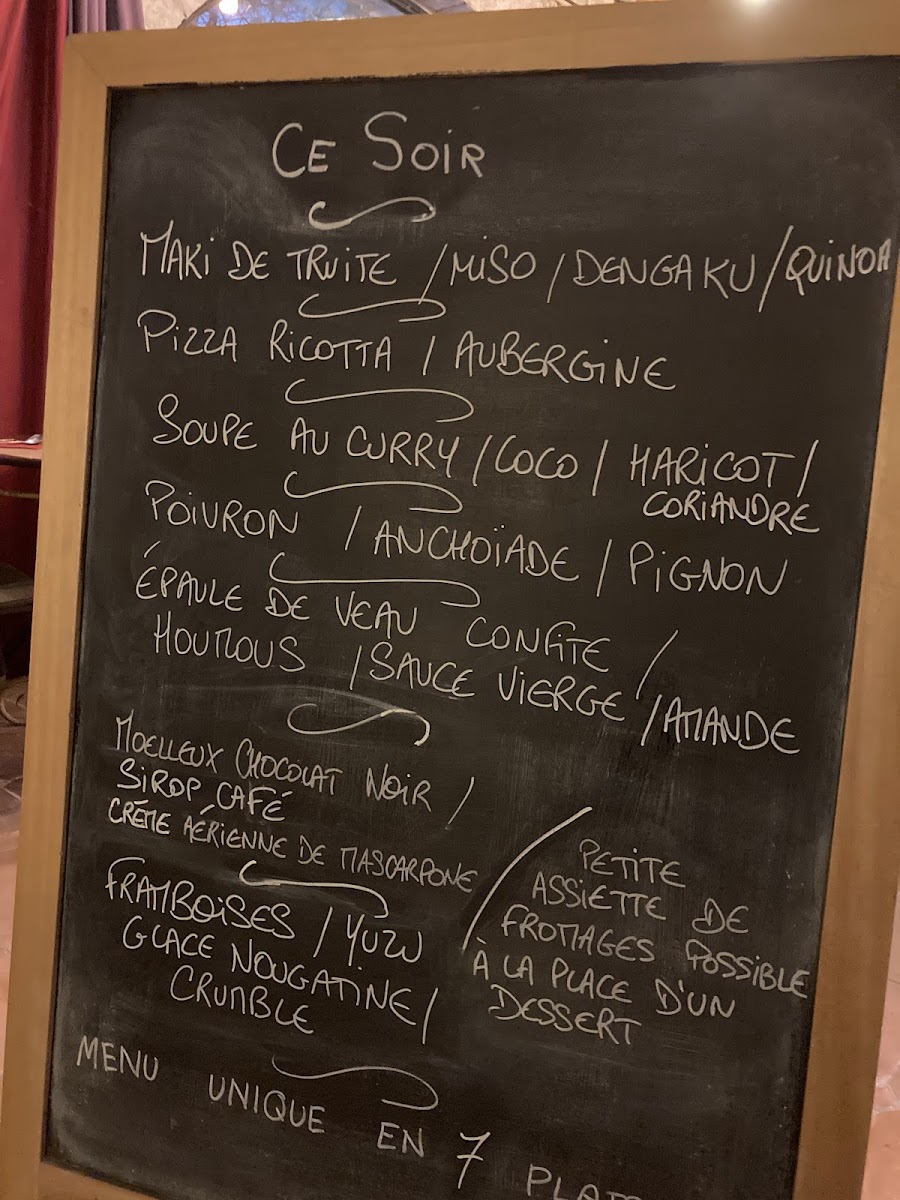 CE SOIR
MAKI DE TRUITE / MISO / DENGAKU / QUINOA
PIZZA RICOTTA / AUBERGINE
SOUPE AU CURRY / COCO / HARICOT /
CORIANDRE
POIVRON / ANCHOÏADE / PIGNON
ÉPAULE DE VEAU CONFITE /
HOUMOUS / SAUCE VIERGE / AMANDE
MOELLEUX CHOCOLAT NOIR /
SIROP CAFÉ
CRÈME AÉRIENNE DE MASCARPONE
FRAMBOISES / YUZU
GLACE NOUGATINE /
CRUMBLE
/ PETITE
ASSIETTE DE
FROMAGES POSSIBLE
À LA PLACE D'UN
DESSERT
MENU UNIQUE EN 7